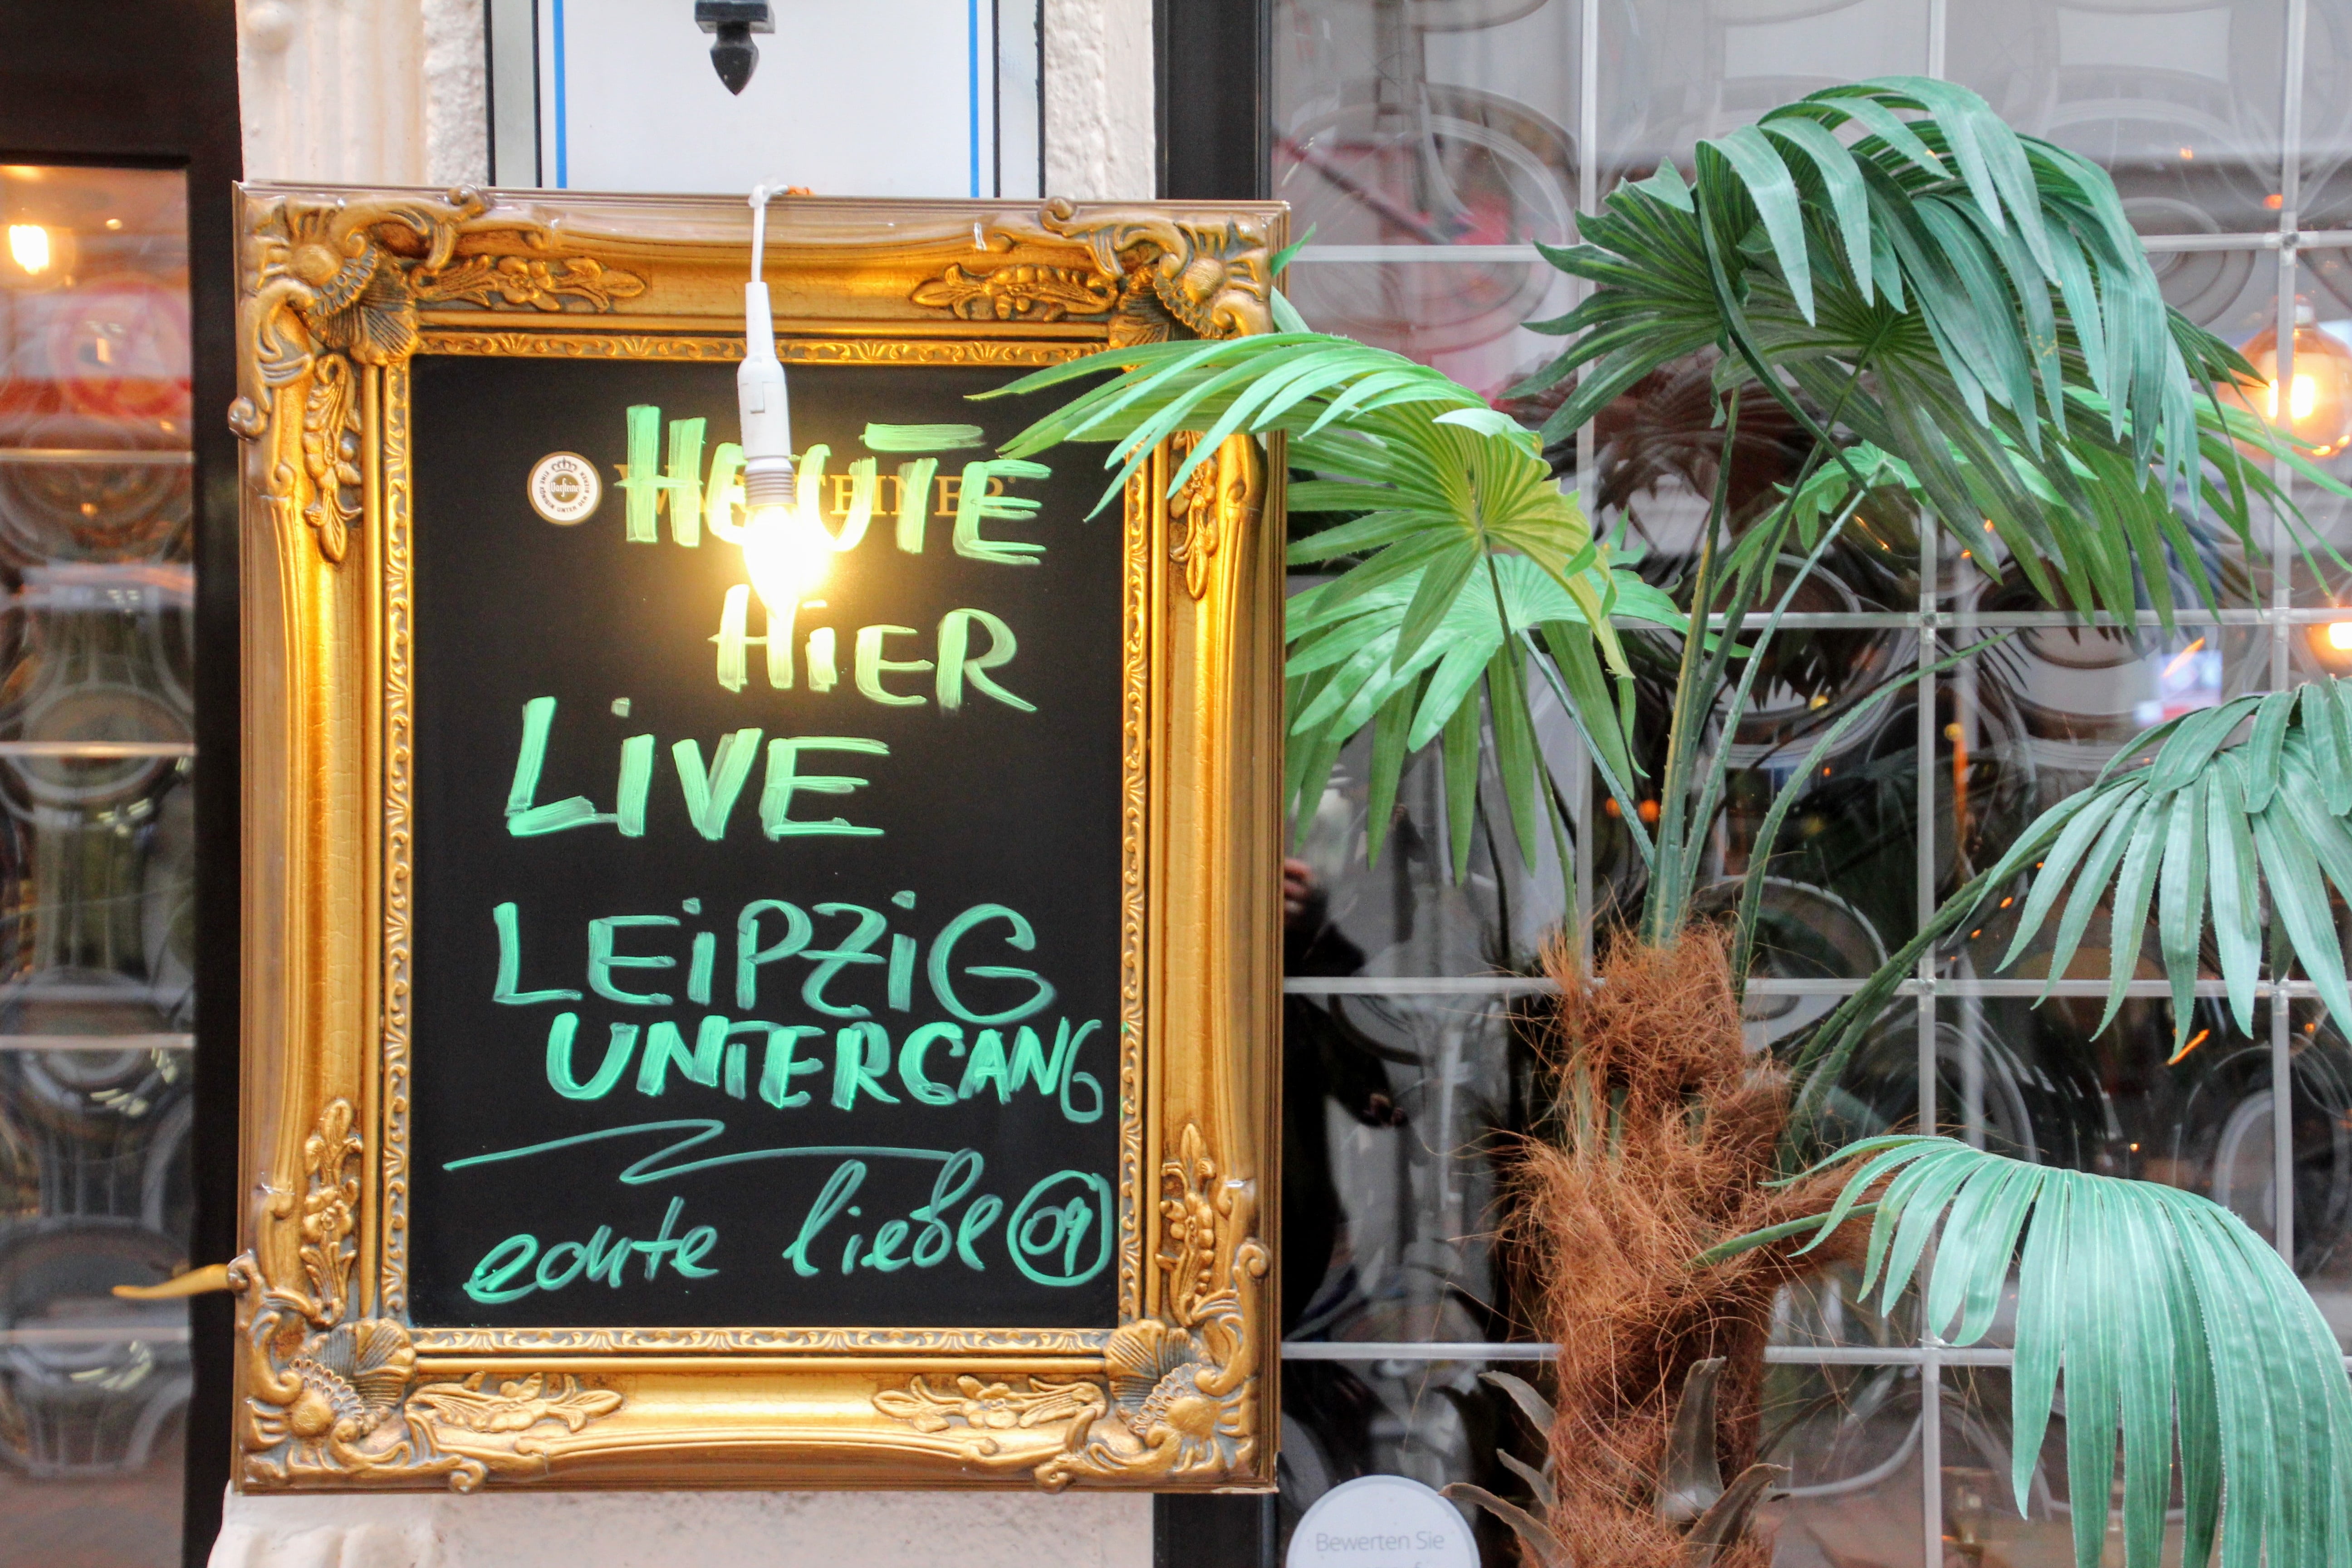 HEUTE
WARSTEINER
HiER
LiVE
LEiPZiG
UNTERGANG
echte liebe 09
Bewerten Sie